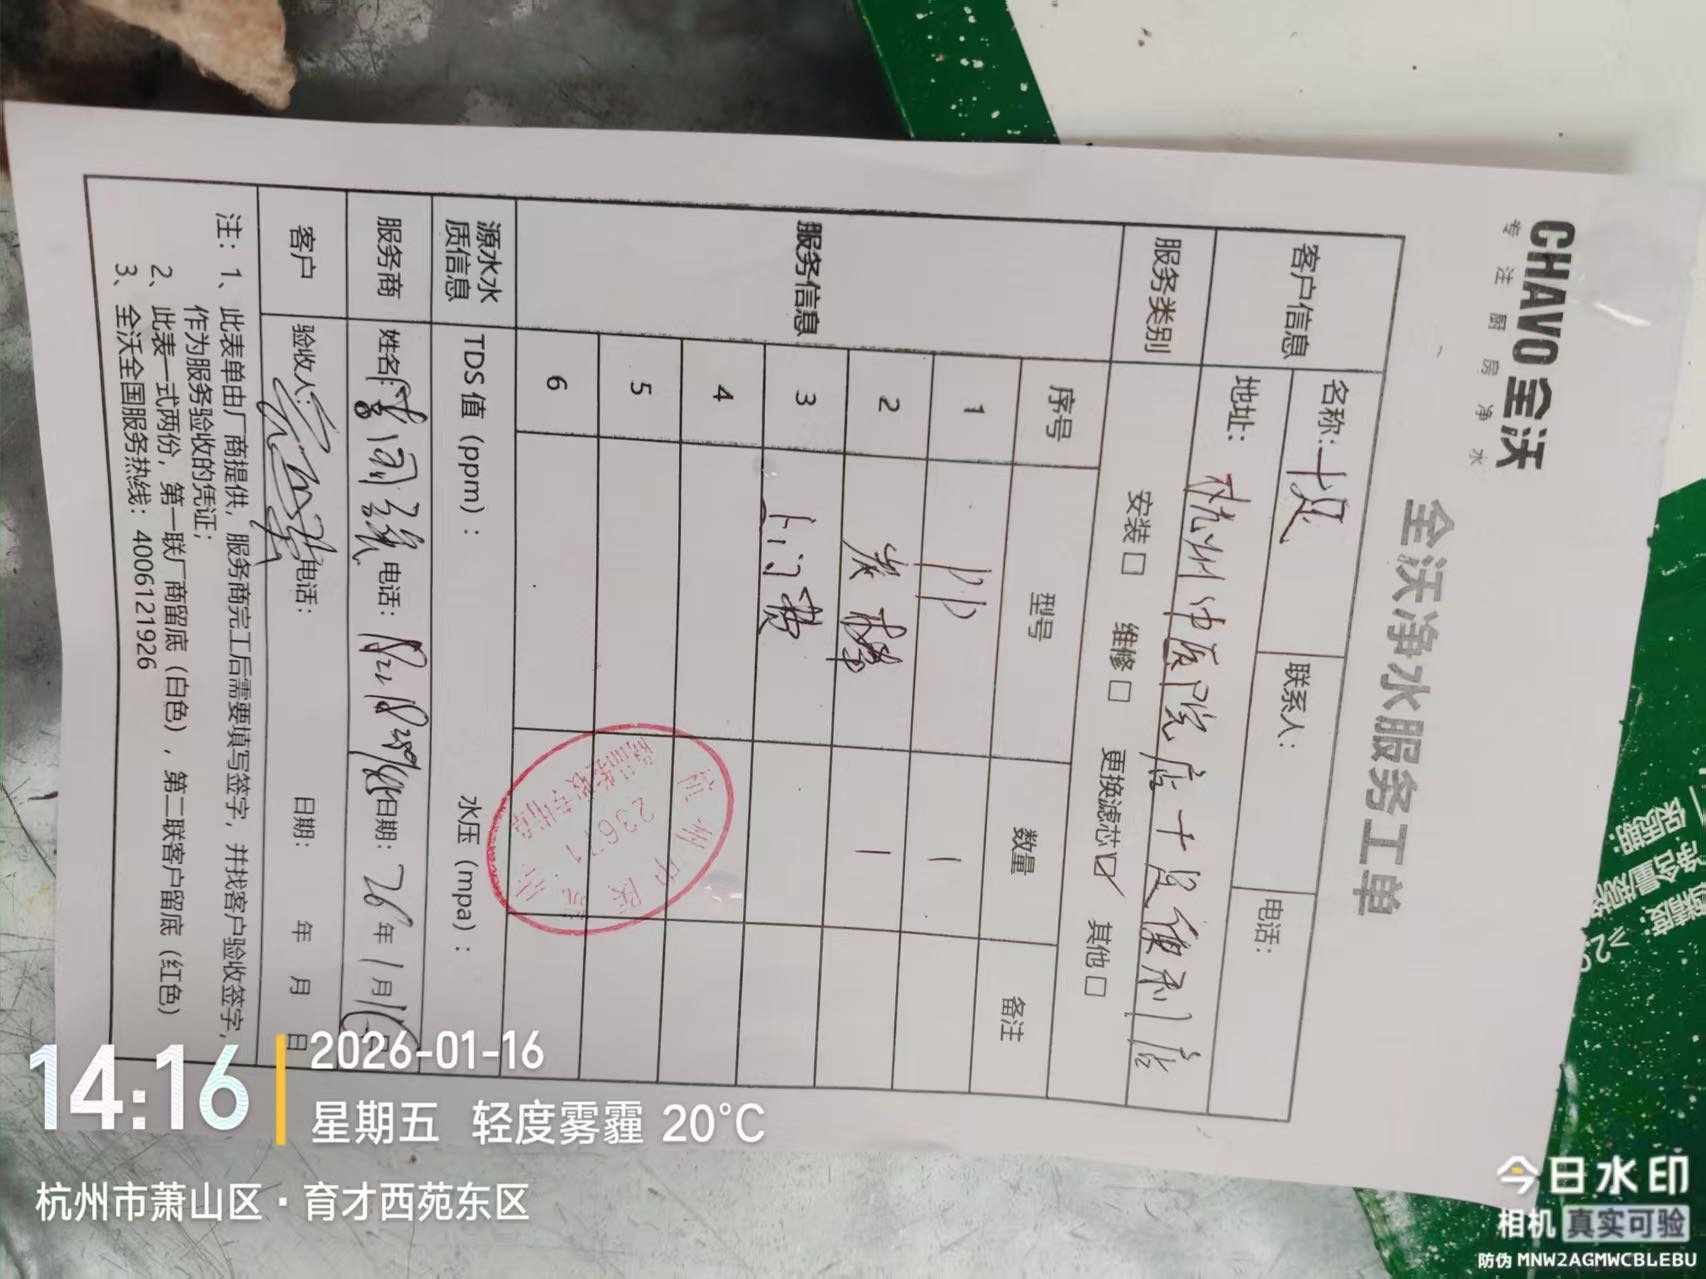 CHAVO全沃
专注厨房净水
全沃净水服务工单
客户信息
名称:十足
联系人:
电话:
地址: 杭州中医院店十足便利店
服务类别
安装□ 维修□ 更换滤芯☑ 其他□
服务信息
序号 型号 数量 备注
1 PP 1
2 炭棒 1
3 上门费
4
5
6
源水水质信息
TDS值(ppm): 水压(mpa):
服务商
姓名: 电话: 日期: 26年1月16日
客户
验收人: 电话: 日期: 年 月 日
注: 1、此表单由厂商提供, 服务商完工后需要填写签字, 并找客户验收签字,
作为服务验收的凭证;
2、此表一式两份, 第一联厂商留底(白色), 第二联客户留底(红色)
3、全沃全国服务热线: 4006121926
杭州中医院店
23671
商品验收专用章
保质期:
14:16
2026-01-16
星期五 轻度雾霾 20°C
杭州市萧山区·育才西苑东区
今日水印
相机 真实可验
防伪 MNW2AGMWCBLEBU